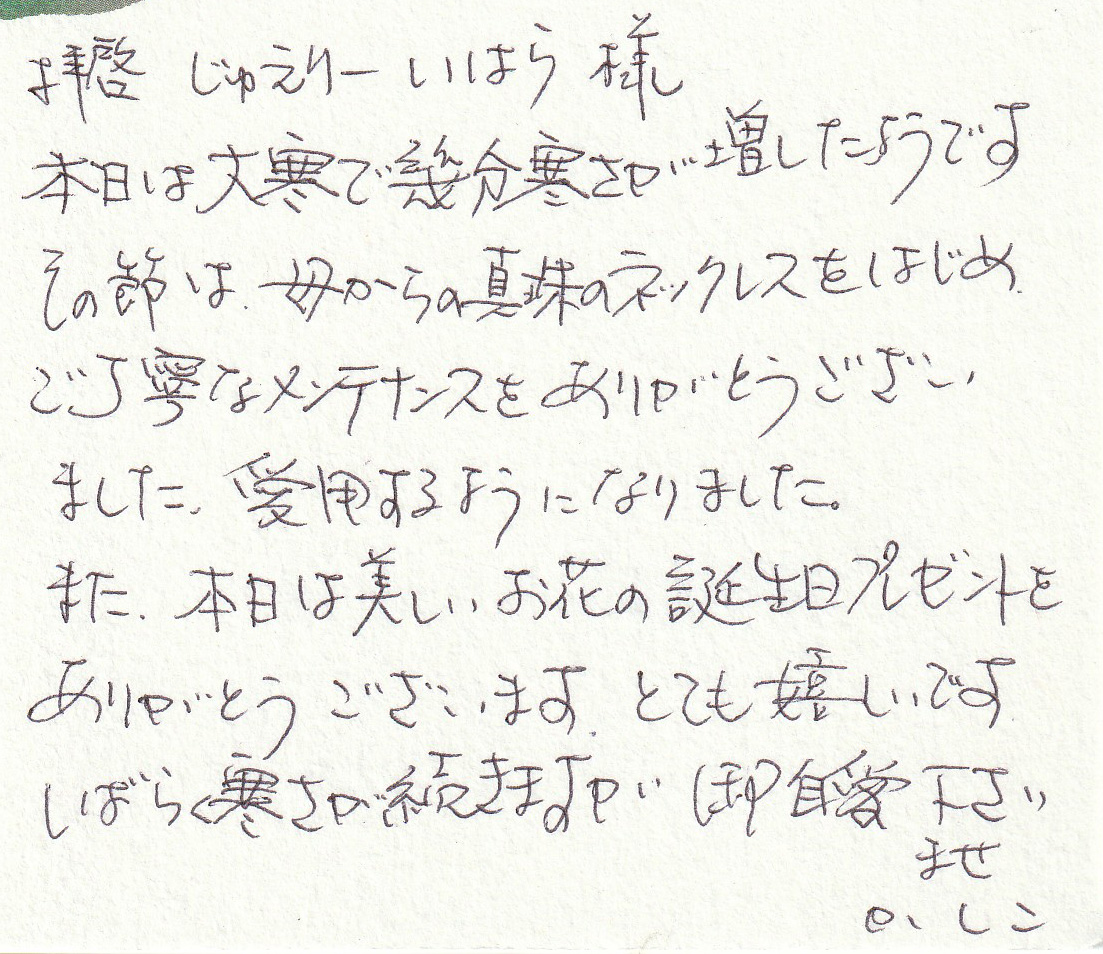 拝啓 じゅえりーいはら 様
本日は大寒で幾分寒さが増したようです
その節は、母からの真珠のネックレスをはじめ、
ご丁寧なメンテナンスをありがとうござい
ました、愛用するようになりました。
また、本日は美しいお花の誕生日プレゼントを
ありがとうございます、とても嬉しいです
しばらく寒さが続きますが御自愛下さい
ませ
かしこ